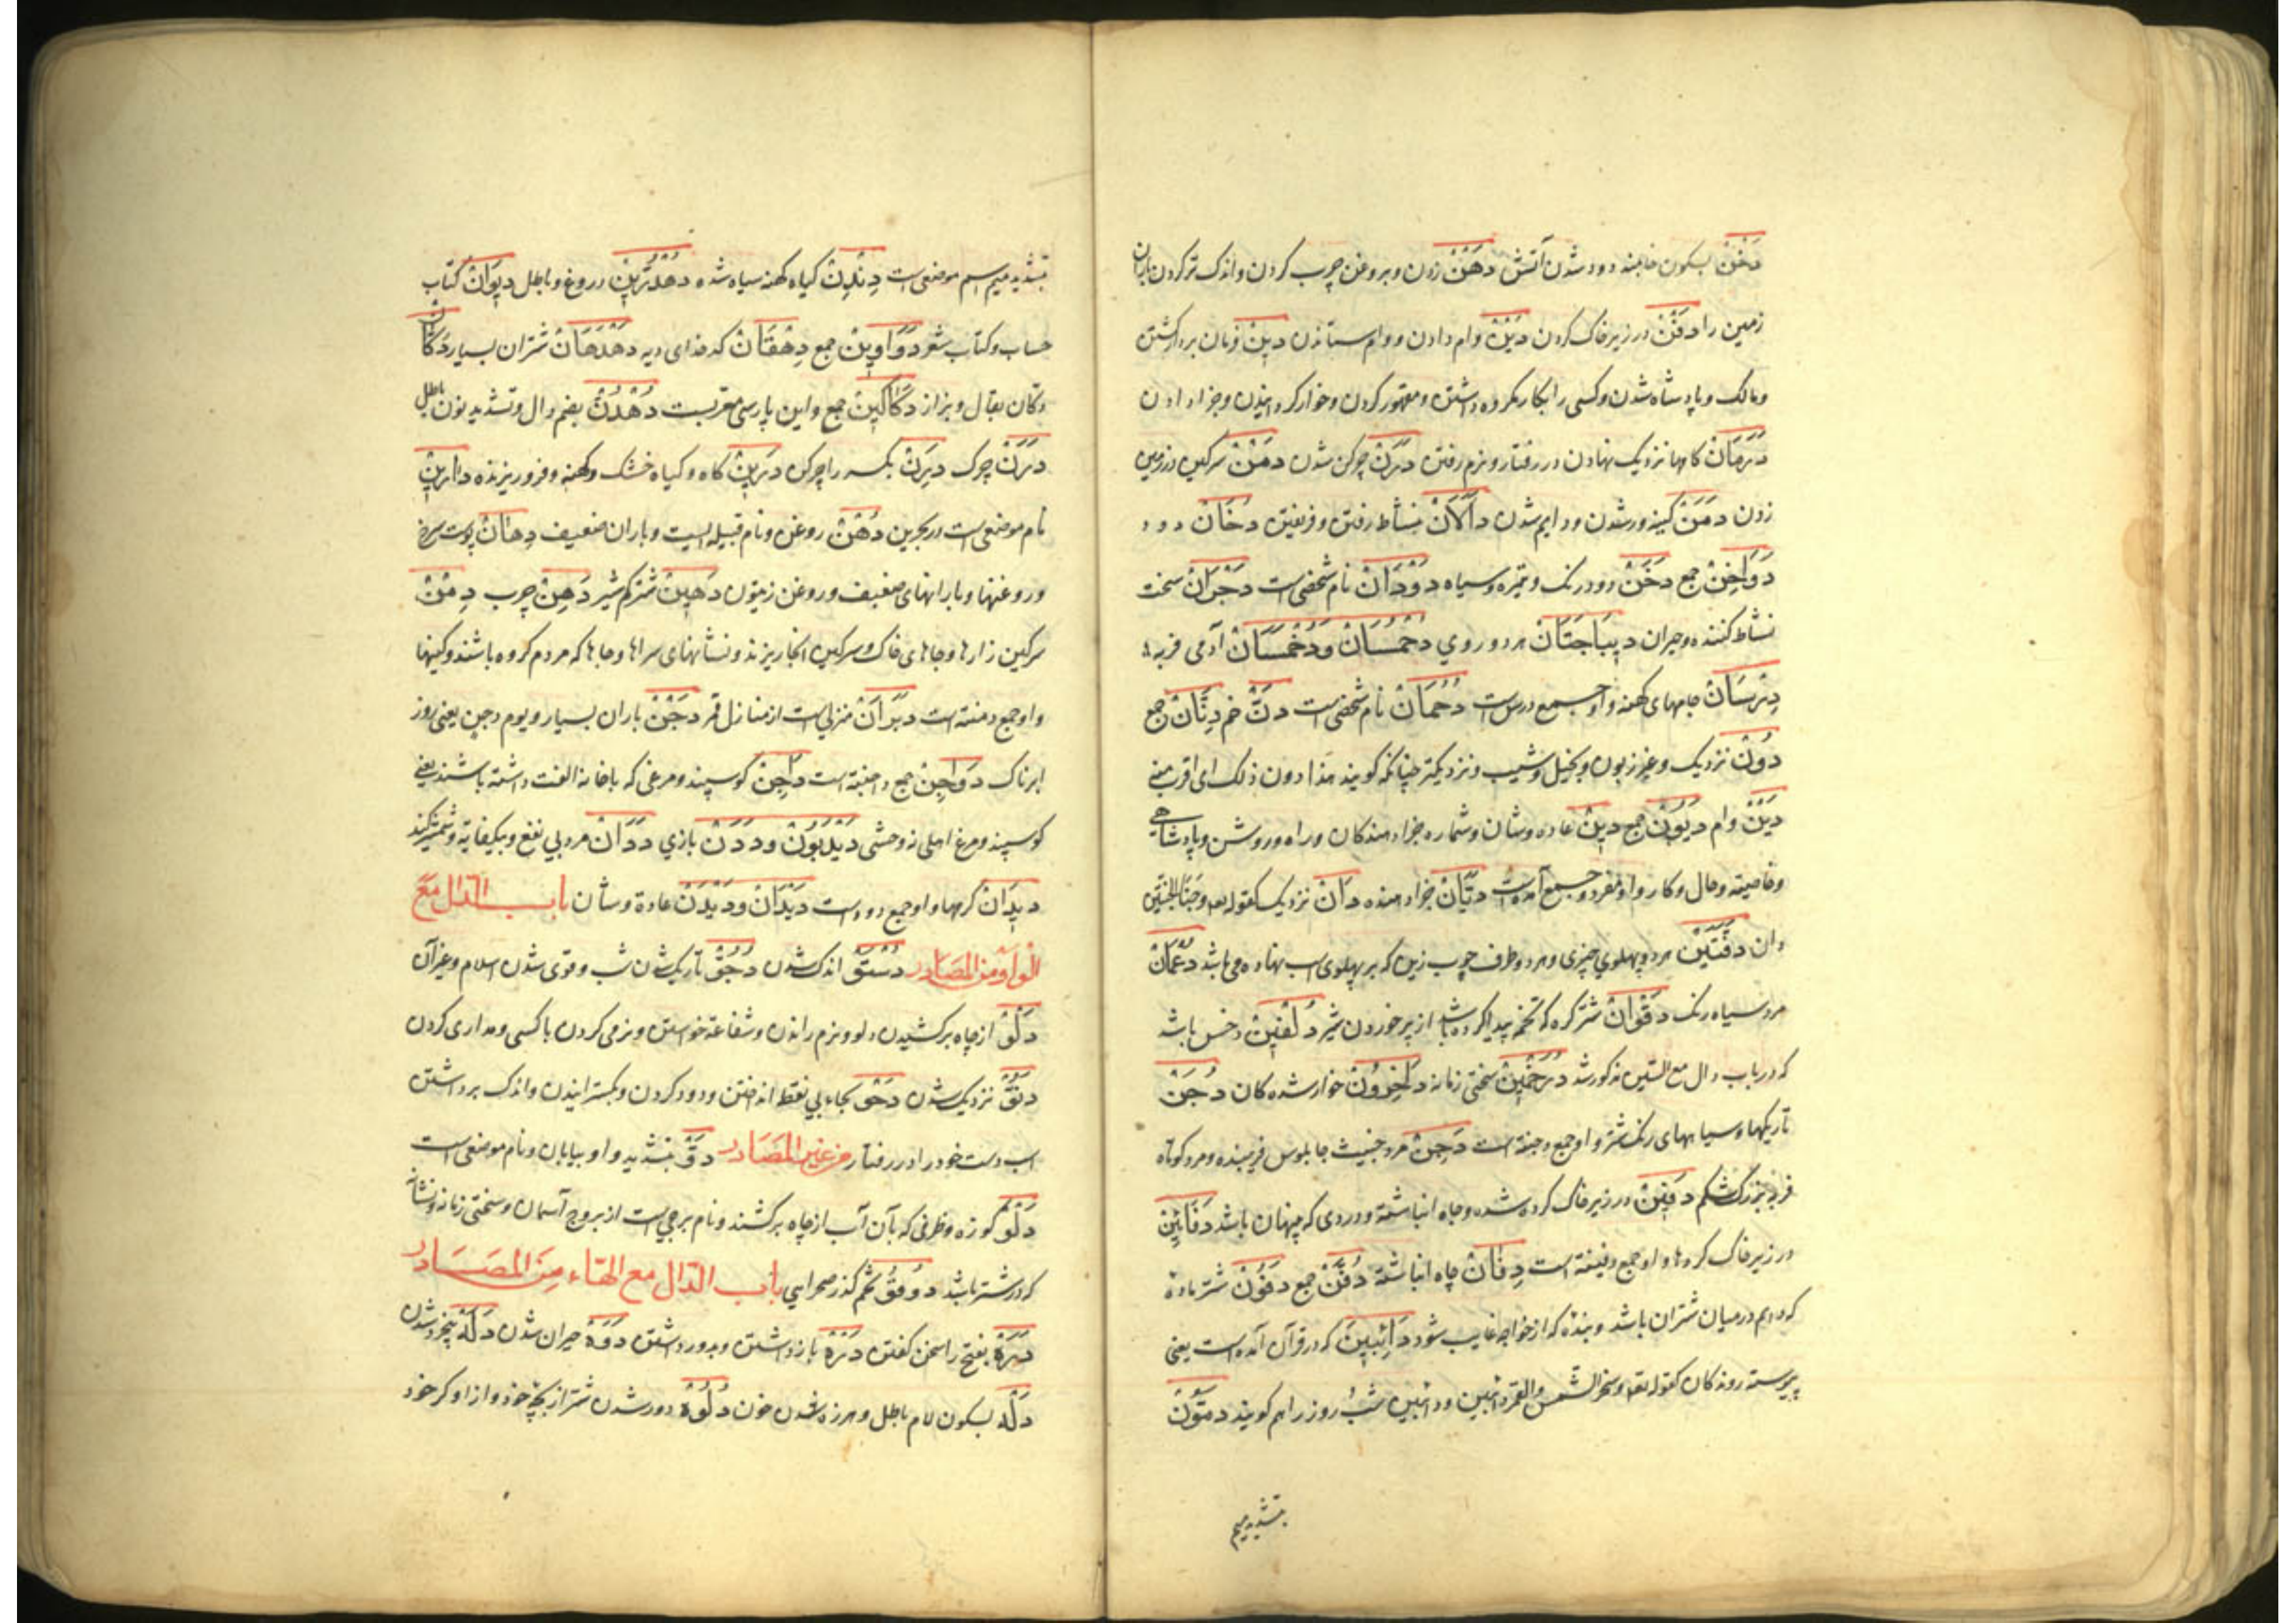 دَخْن بسکون خا پنبه دود شدن آتش دَهْن زدن و بروغن چرب کردن و اندک تر کردن باران
زمین را دَفْن در زیر خاک کردن دَیْن وام دادن و وام ستاندن دِین فرمان بردار گشتن
و مالک و پادشاه شدن و کسی را بکار مکروه داشتن و مقهور کردن و خوار گردانیدن و جزا دادن
دَرَمَان کامها نزدیک نهادن در رفتار و نرم رفتن دَرَن چرکن شدن دَمْن سرکین در زمین
زدن دَمَن کینه ور شدن و دایم شدن دَأَلَان بنشاط رفتن و فریفتن دُخَان دود
دَوَاخِن جمع دَخَن دود رنک و تیره و سیاه دُودَان نام شخصی است دَجْرَان سخت
نشاط کننده و حیران دِیبَاجَتَان هر دو روی دُحْمُسَان و دُخْمَسَان آدمی فربه
دِرْسَان جامهای کهنه و او جمع درس است دُحْمَان نام شخصی است دَنّ خم دِنَان جمع
دُون نزدیک و غیر زبون و بخیل و شیب و نزدیکتر چنانکه کویند هذا دون ذلک ای اقرب منه
دَیْن وام دُیُون جمع دِین عاده و شان و شماره جزا دهندکان و راه و روش و پادشاهی
و خاصیته و حال و کار و او مفرد و جمع آمده است دَیَّان جزا دهنده دَان نزدیک کقوله تعه و جنا الجنتین
دان دَفَّتَیْن هر دو پهلوی چیزی و هر دو طرف چوب زین که بر پهلوی اسب نهاده می باشد
مرد سیاه رنک دَقْوَان شتر کره که تخمه پیدا کرده باشد از پر خوردن شیر دُلْفِین دخس باشد
که در باب دال مع السین مذکور شد دُرَخْمِین سختی زمانه دَاخِرُون خوار شده کان دُجَن
تاریکیها و سیاهیهای رنک شتر و او جمع دجنة است دَحِن مرد خبیث چابلوس فریبنده و مرد کوتاه
فربه بزرک شکم دَفِین در زیر خاک کرده شده و چاه انباشته و دردی که پنهان باشد دَفَائِن
در زیر خاک کرده ها و او جمع دفینة است دِفَان چاه انباشته دُفُن جمع دَفُون شتر ماده
که دایم در میان شتران باشد و بنده که از خواجه غایب شود دَائِبَیْن که در قرآن آمده است یعنی
پیوسته روندکان کقوله تعه و سخر الشمس و القمر دائبین و دائبین شب و روز را هم کویند دَمُّون
بتشدید میم
بتشدید میم اسم موضعی است دِنْدِن کیاه کهنه سیاه شده دُهْدُرَّیْن دروغ و باطل دِیوَان کتاب
حساب و کتاب شعر دَوَاوِین جمع دِهْقَان کدخدای دیه دَهْدَهَان شتران بسیار دُکَّان
دکان بقال و بزاز دَکَاکِین جمع و این پارسی معربست دُهْدُنّ بضم دال و تشدید نون باطل
دَرَن چرک دَرِن بکسر را چرکن دَرِین کاه و کیاه خشک و کهنه و فرو ریزنده دَارِین
نام موضعی است در بحرین دُهْن روغن و نام قبیله ایست و باران ضعیف دِهَان پوست سرخ
و روغنها و بارانهای ضعیف و روغن زیتون دَهِین شتر کم شیر دَهِن چرب دِمَن
سرکین زارها و جاهای خاک و سرکین انجا ریزند و نشانهای سراها و جاها که مردم کروه باشند و کینها
و او جمع دمنة است دَبَرَان منزلی است از منازل قمر دَجْن باران بسیار و یوم دجن یعنی روز
ابرناک دَوَاجِن جمع داجنة است دَاجِن کوسپند و مرغی که با خانه الفت داشته باشند یعنی
کوسپند و مرغ اهلی نه وحشی دَیْدَبُون و دَدَن بازی دَدَان مرد بی نفع و بیکفایة و شمشیر کند
دِیدَان کرمها و او جمع دود است دَیْدَان و دَیْدَن عادة و شان باب الدال مع
الواو من المصادر اندک شدن دُجُوّ تاریک شدن شب و قوی شدن اسلام و غیر آن
دَلْو از چاه برکشیدن دلو و نرم راندن و شفاعة خواستن و نرمی کردن با کسی و مداری کردن
دُنُوّ نزدیک شدن دَحْو بحاء بی نقطه انداختن و دور کردن و بکسترانیدن و اندک برداشتن
اسب دست خود را در رفتار من غیر المصادر دَوّ بتشدید واو بیابان و نام موضعی است
دَلْو کوزه و ظرفی که بآن آب از چاه برکشند و نام برجی است از بروج آسمان و سختی زمانه و نشانه
که در شتر باشد تخم کذر صحرایی باب الدال مع الهاء من المصادر
بفتح را سخن کفتن باز داشتن و دور داشتن حیران شدن دَلَه بیخرد شدن
دَلْه بسکون لام باطل و هرزه شدن خون دُلُوه دور شدن شتر از بچه خود و از او کر خود